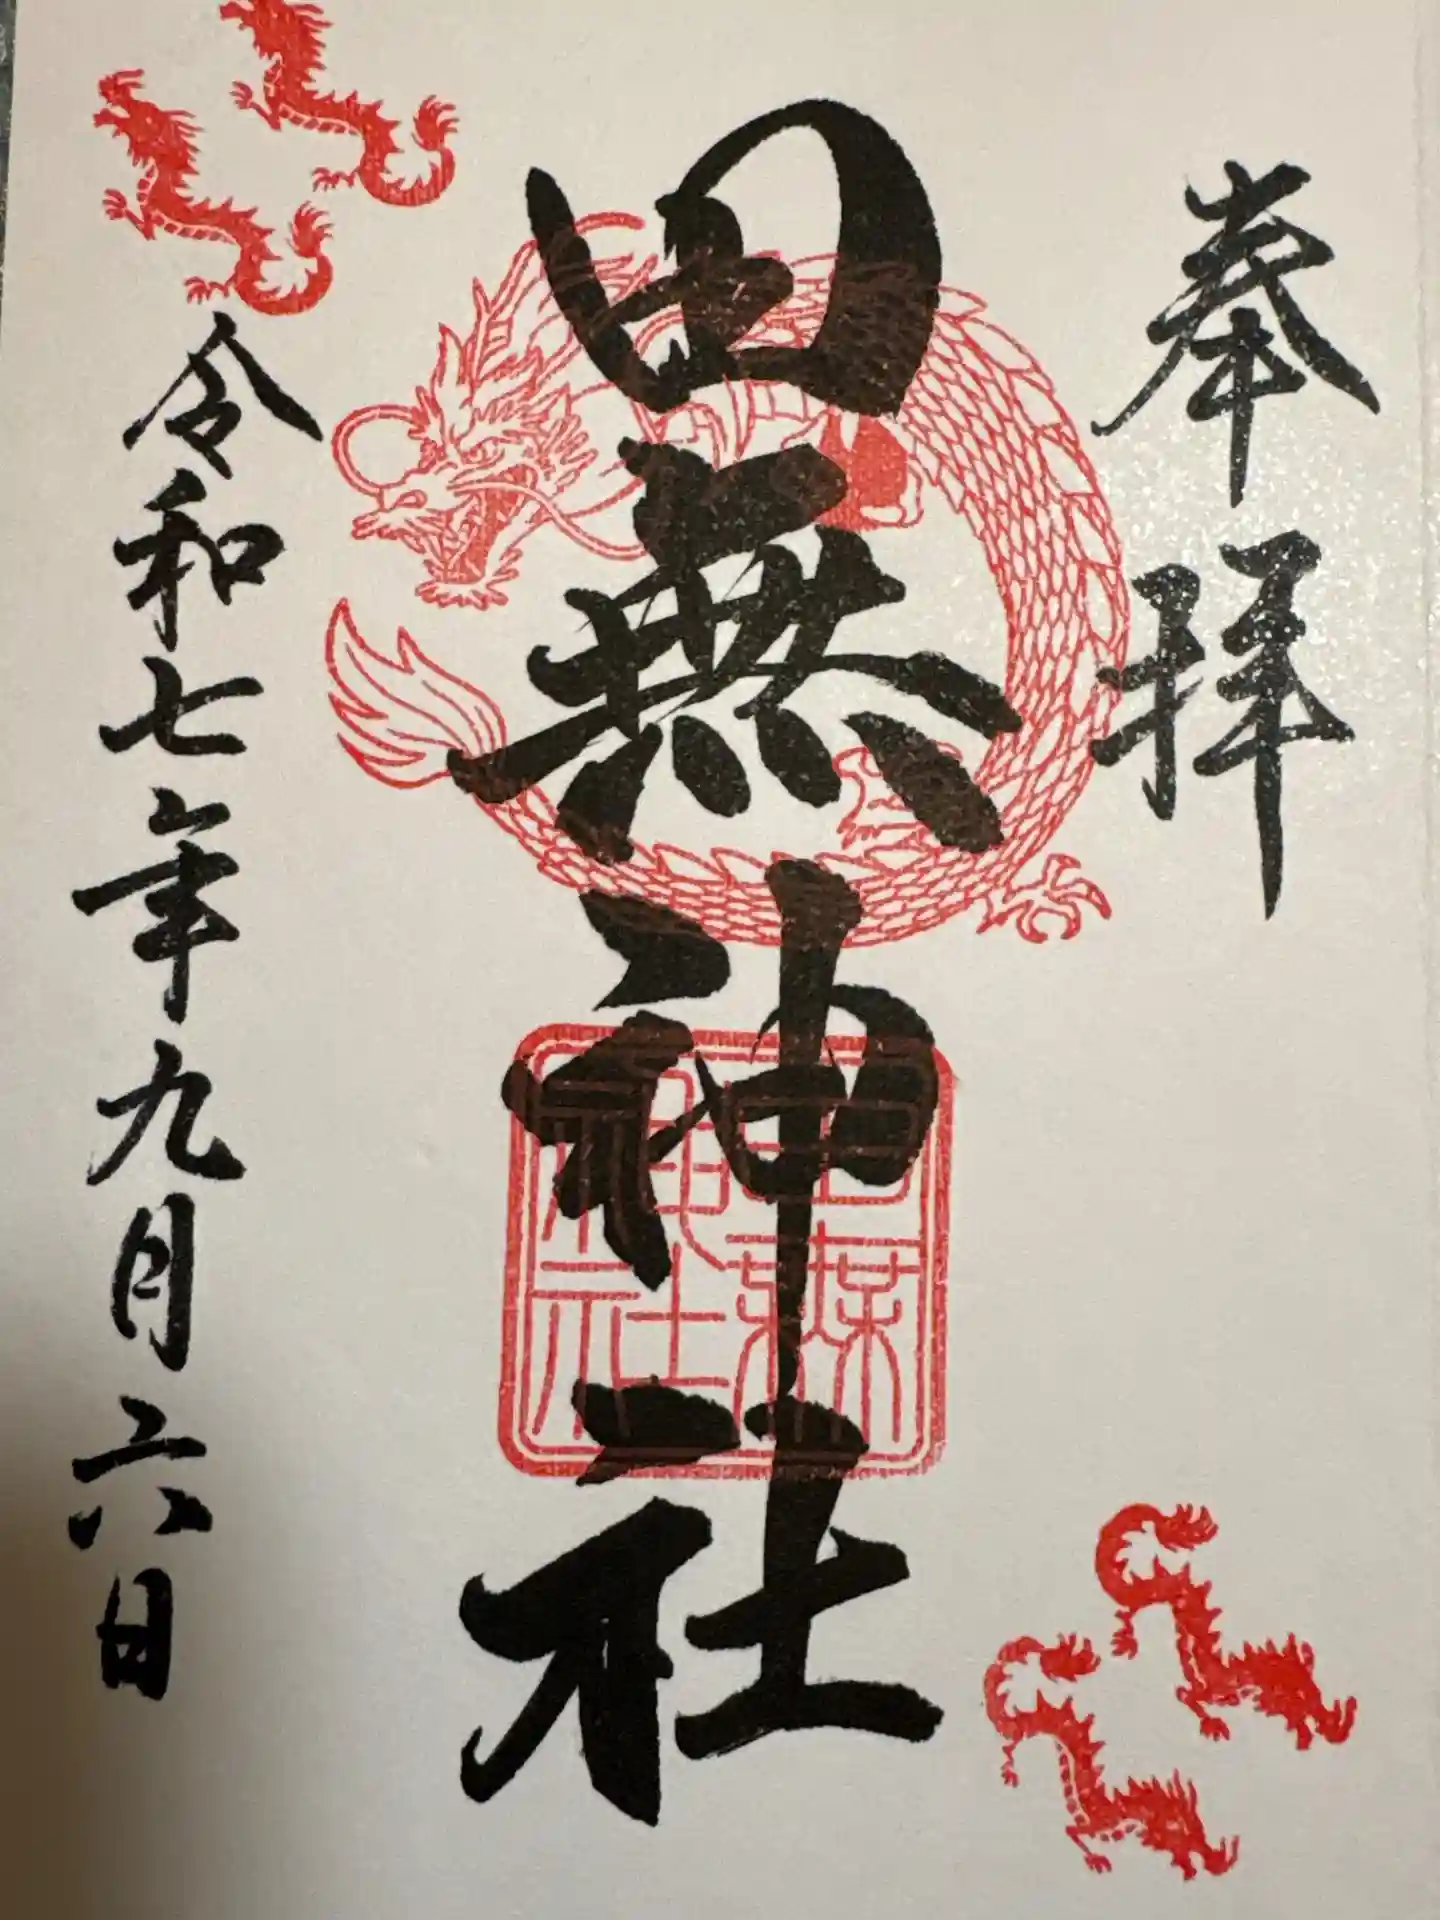 奉拝
田無神社
田無神社
令和七年九月六日